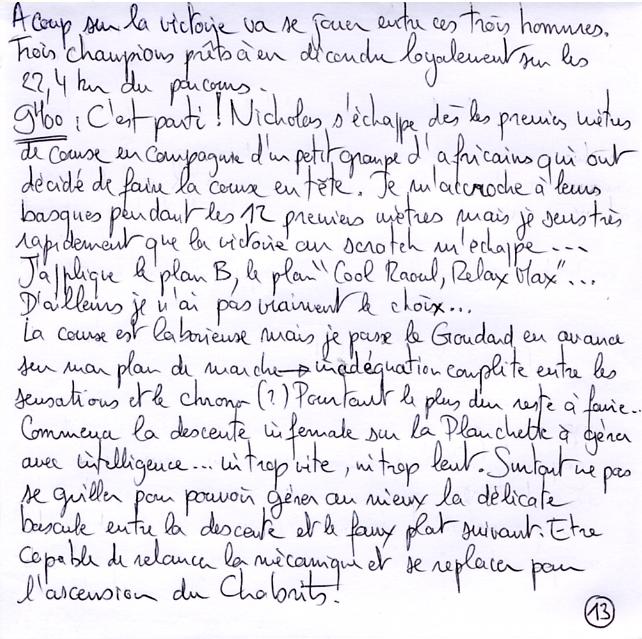 A coup sur la victoire va se jouer entre ces trois hommes.
Trois champions prêts à en découdre loyalement sur les
22,4 km du parcours.
9H00 : C'est parti ! Nicholas s'échappe dès les premiers mètres
de course en compagnie d'un petit groupe d'africains qui ont
décidé de faire la course en tête. Je m'accroche à leurs
basques pendant les 12 premiers mètres mais je sens très
rapidement que la victoire au scratch m'échappe ---
J'applique le plan B, le plan "Cool Raoul, Relax Max"...
D'ailleurs je n'ai pas vraiment le choix...
La course est laborieuse mais je passe le Goudard en avance
sur mon plan de marche → inadéquation complète entre les
sensations et le chrono (?) Pourtant le plus dur reste à faire...
Commence la descente infernale sur la Planchette à gérer
avec intelligence... ni trop vite, ni trop lent. Surtout ne pas
se griller pour pouvoir gérer au mieux la délicate
bascule entre la descente et le faux plat suivant. Etre
capable de relancer la mécanique et se replacer pour
l'ascension du Chabrits!
13